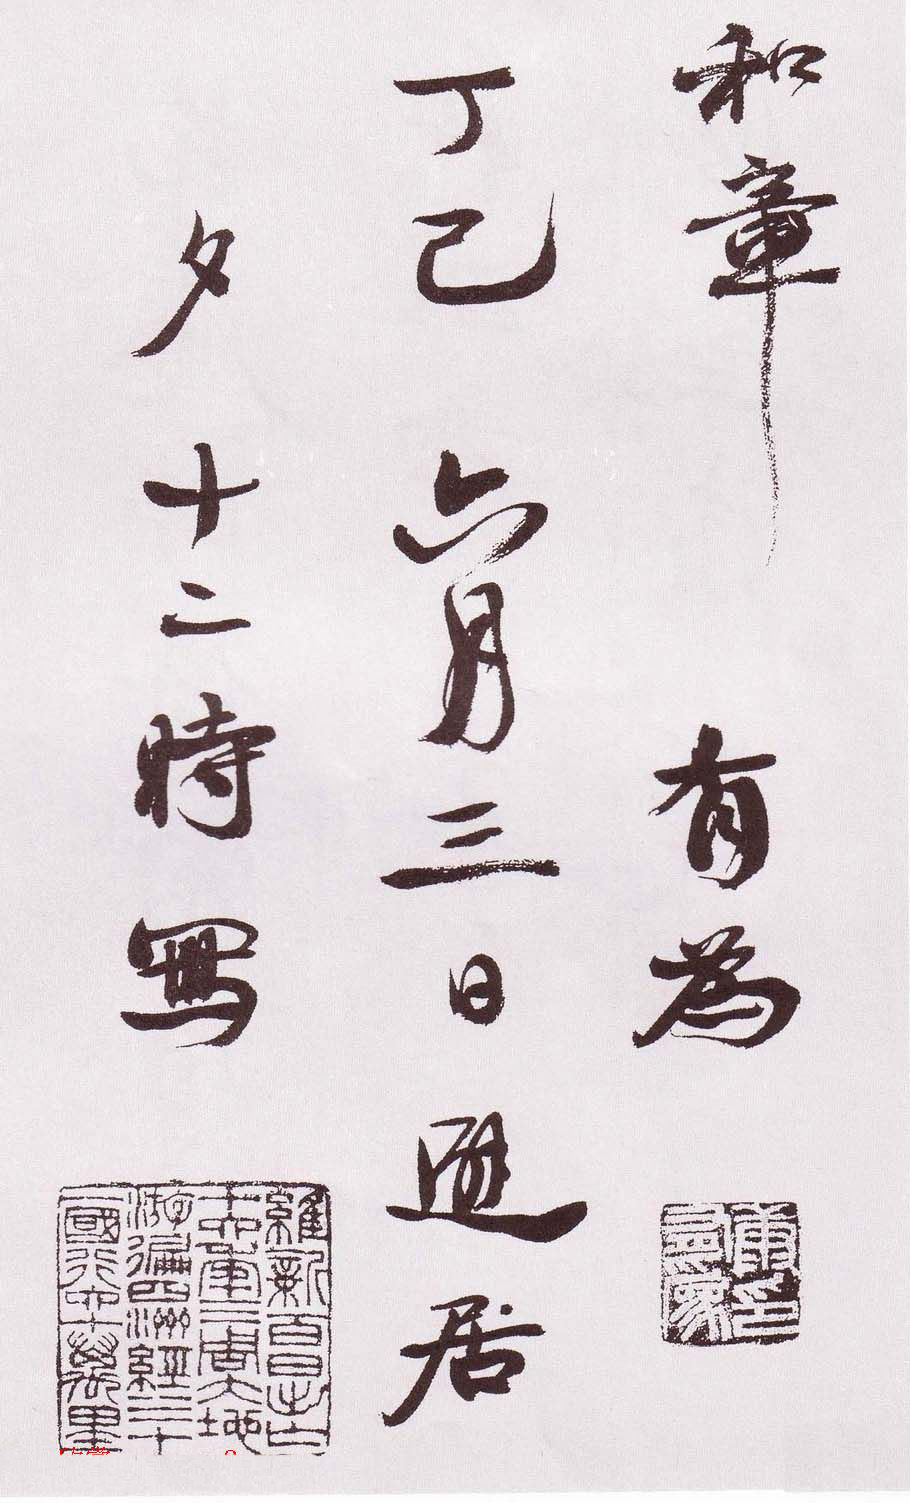 和章 有為
康有為印
丁巳六月三日居
夕十二時寫
維新百日出亡
十六年三周大地
游遍四洲經三十
一國行六十萬里